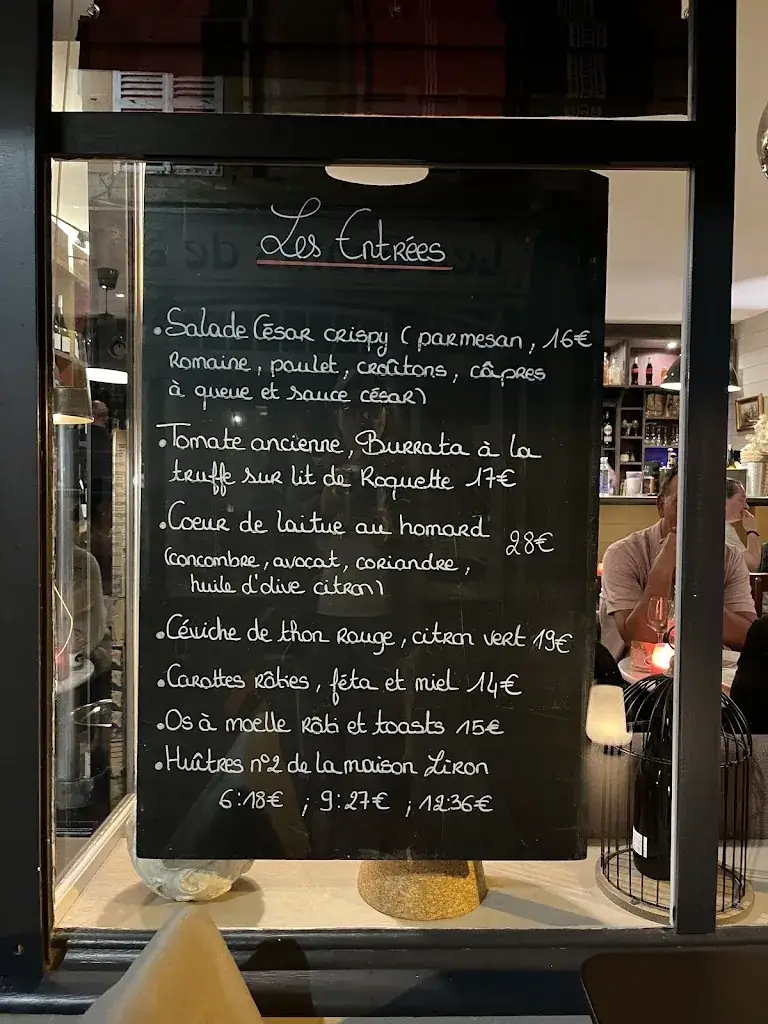 Les Entrées
• Salade César crispy ( parmesan, 16€
Romaine, poulet, croûtons, câpres
à queue et sauce césar)
• Tomate ancienne, Burrata à la
truffe sur lit de Roquette 17€
• Coeur de laitue au homard 28€
(concombre, avocat, coriandre,
huile d'olive citron)
• Céviche de thon rouge, citron vert 19€
• Carottes rôties, féta et miel 14€
• Os à moelle rôti et toasts 15€
• Huîtres n°2 de la maison Liron
6:18€ ; 9:27€ ; 12:36€